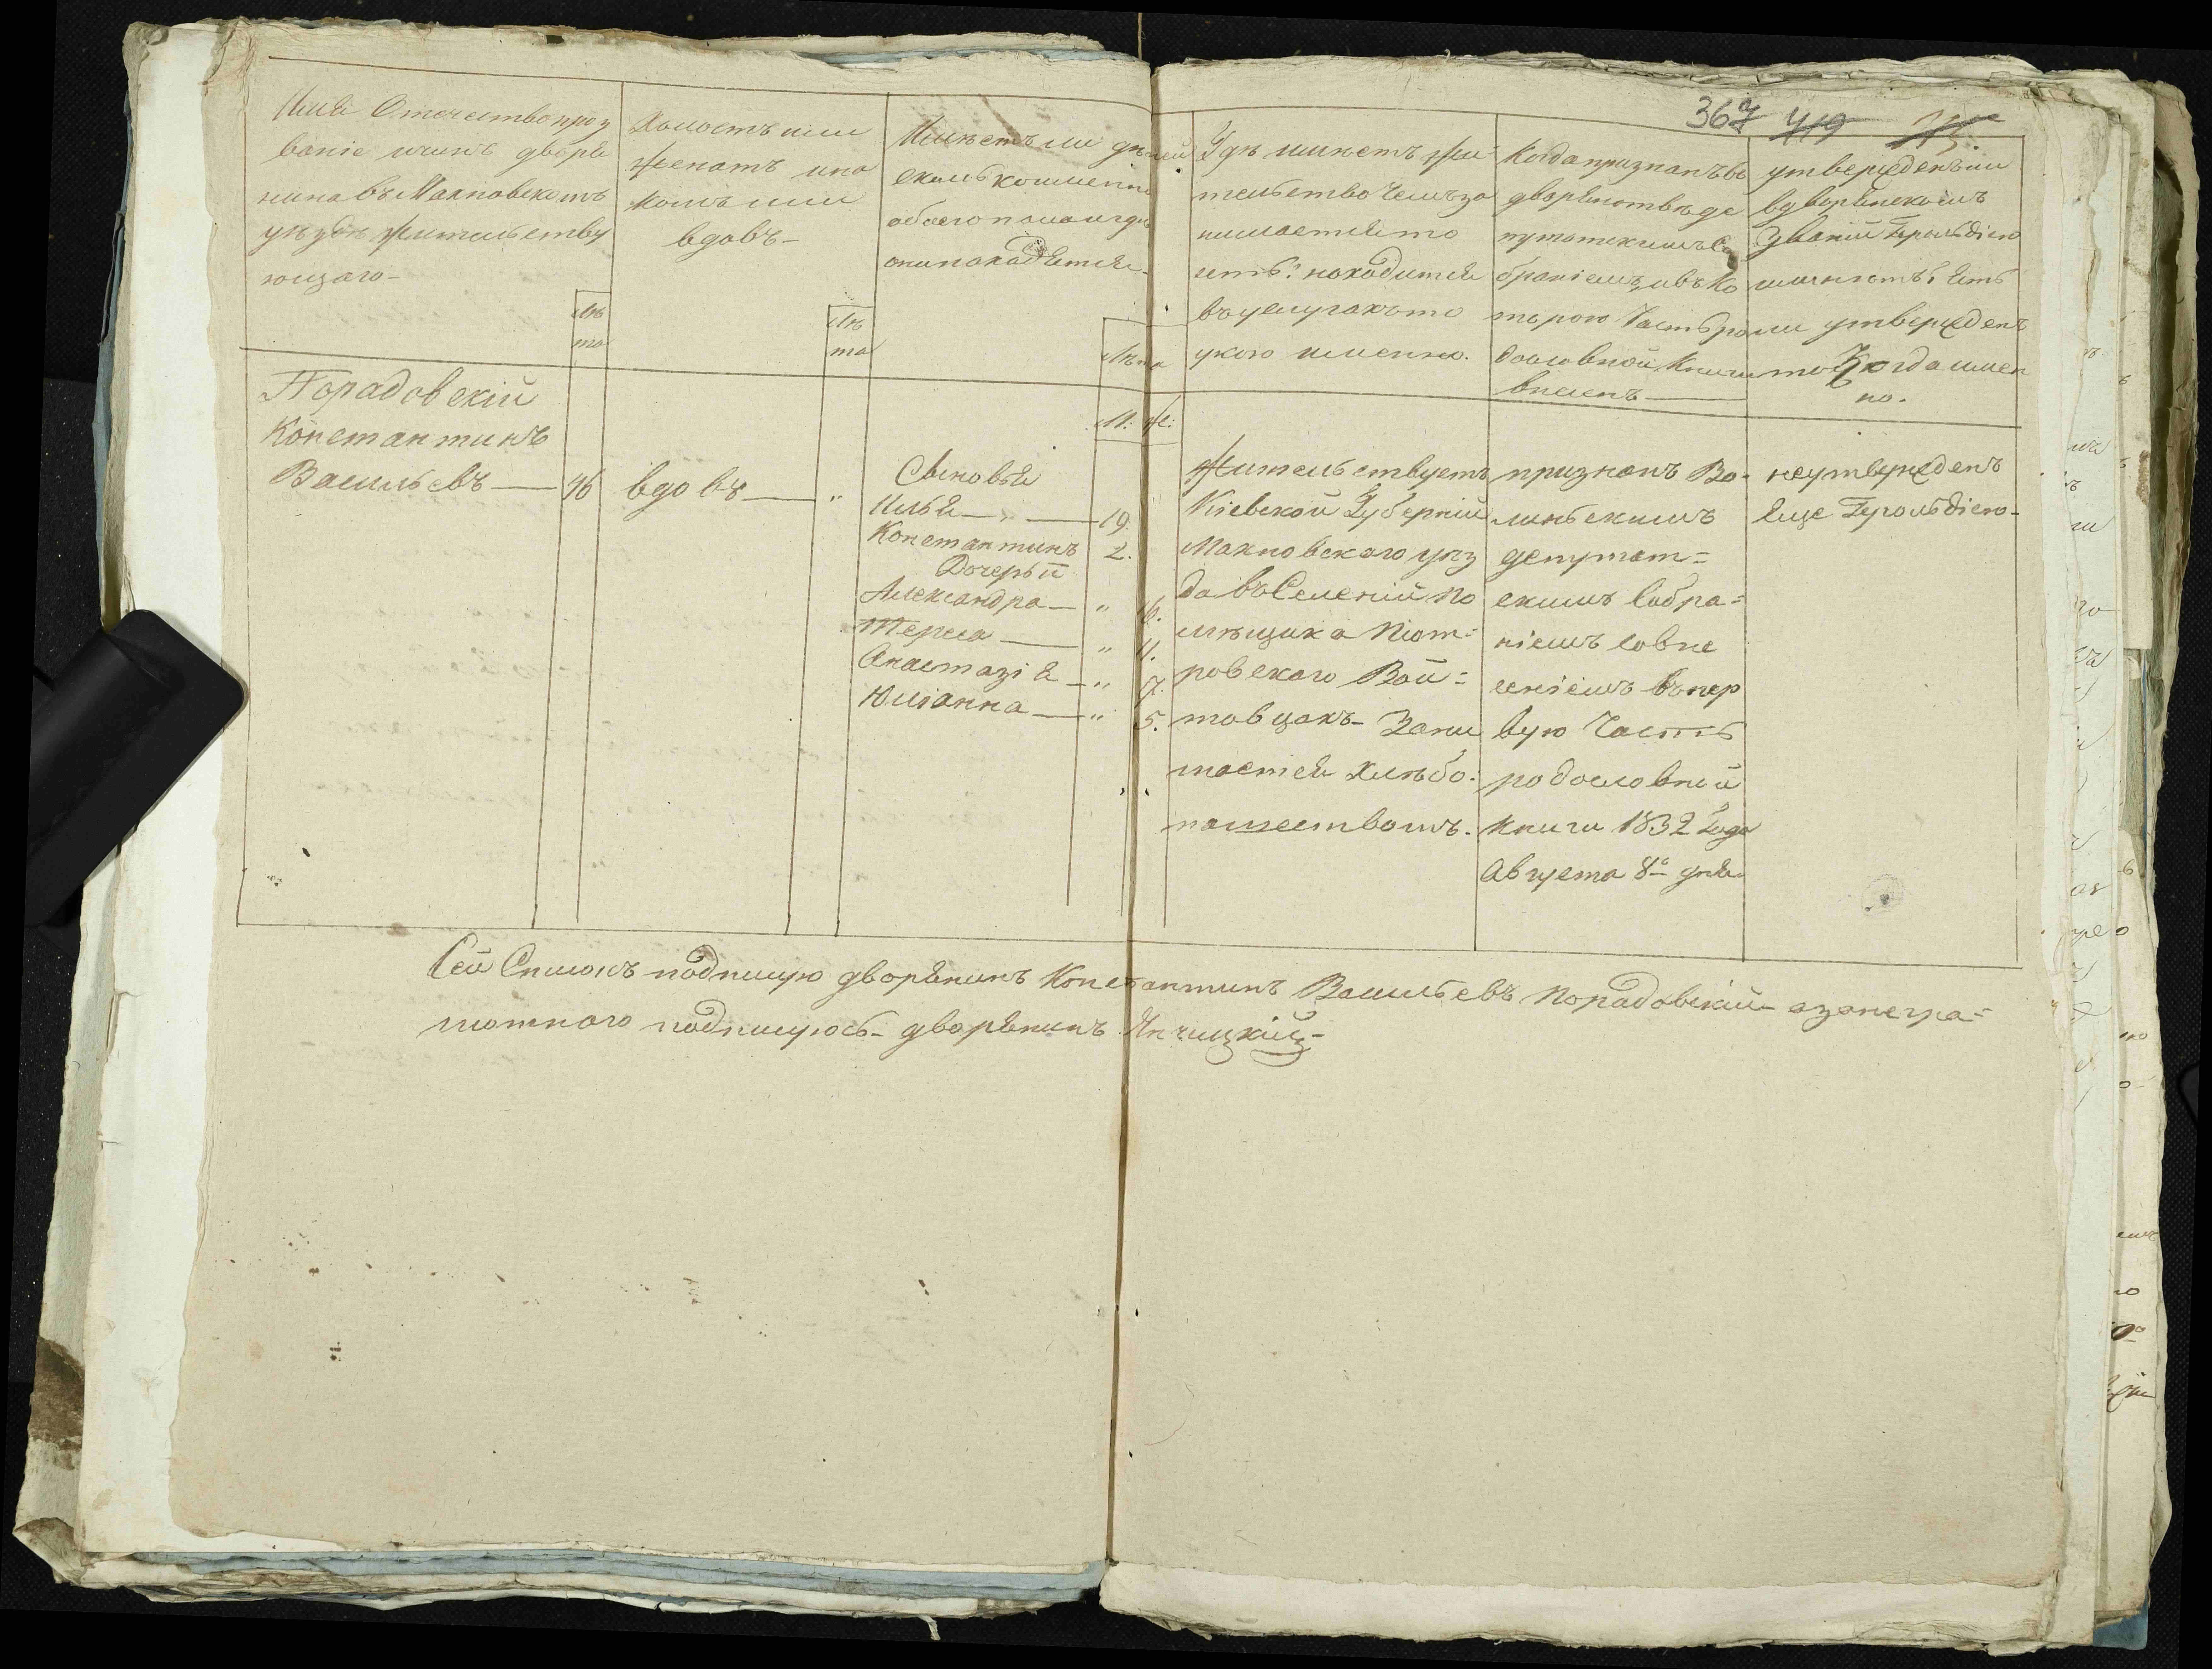 367 419
Имя Отечество проз
ваніе и чинъ дворя
нина въ Махновскомъ
уѣздѣ жительству
ющаго-
Лѣ
та
Холостъ или
женатъ и на
комъ или
вдовъ-
Лѣ
та
Имѣетъ ли дѣтей
сколько именно
обоего пола и гдѣ
они находятся-
Лѣта
М: Ж:
Гдѣ имѣетъ жи-
тельство чемъ за
нимается и то
есть: находится
въ услугахъ то
у кого именно.
Когда признанъ въ
дворянствѣ де
путатскимъ Со
браніемъ, и въ ко
торою Часть ро
дословной Книги
внесенъ
утвержденъ ли
въ дворянскомъ
Званіи Герольдіею
или нѣтъ, Есть
ли утвержденъ
то Когда имен
но.
Порадовскій
Константинъ
Васильевъ — 46
вдовъ — "
Сыновья
Илья — " — 19.
Константинъ 2.
Дочерьи
Александра — "
Терса — "
Анастазія — " 7.
Юліанна — " 5.
Жительствуетъ
Кіевской Губерніи
Махновскаго уѣз
да въ Селеніи по
мѣщика Піот=
ровскаго Вой=
товцахъ- Зани
мается хлѣбо.
пашествомъ.
признанъ Во-
линскимъ
депутат=
скимъ Собра=
ніемъ совне
сеніемъ въ пер
вую Часть
родословной
книги 1832 Года
Августа 8го дня.
неутвержденъ
Еще Герольдіею-
Сей Списокъ подпишую дворянинъ Константинъ Васильевъ Порадовскій- а за негра=
мотного подпишуюсь- дворянинъ